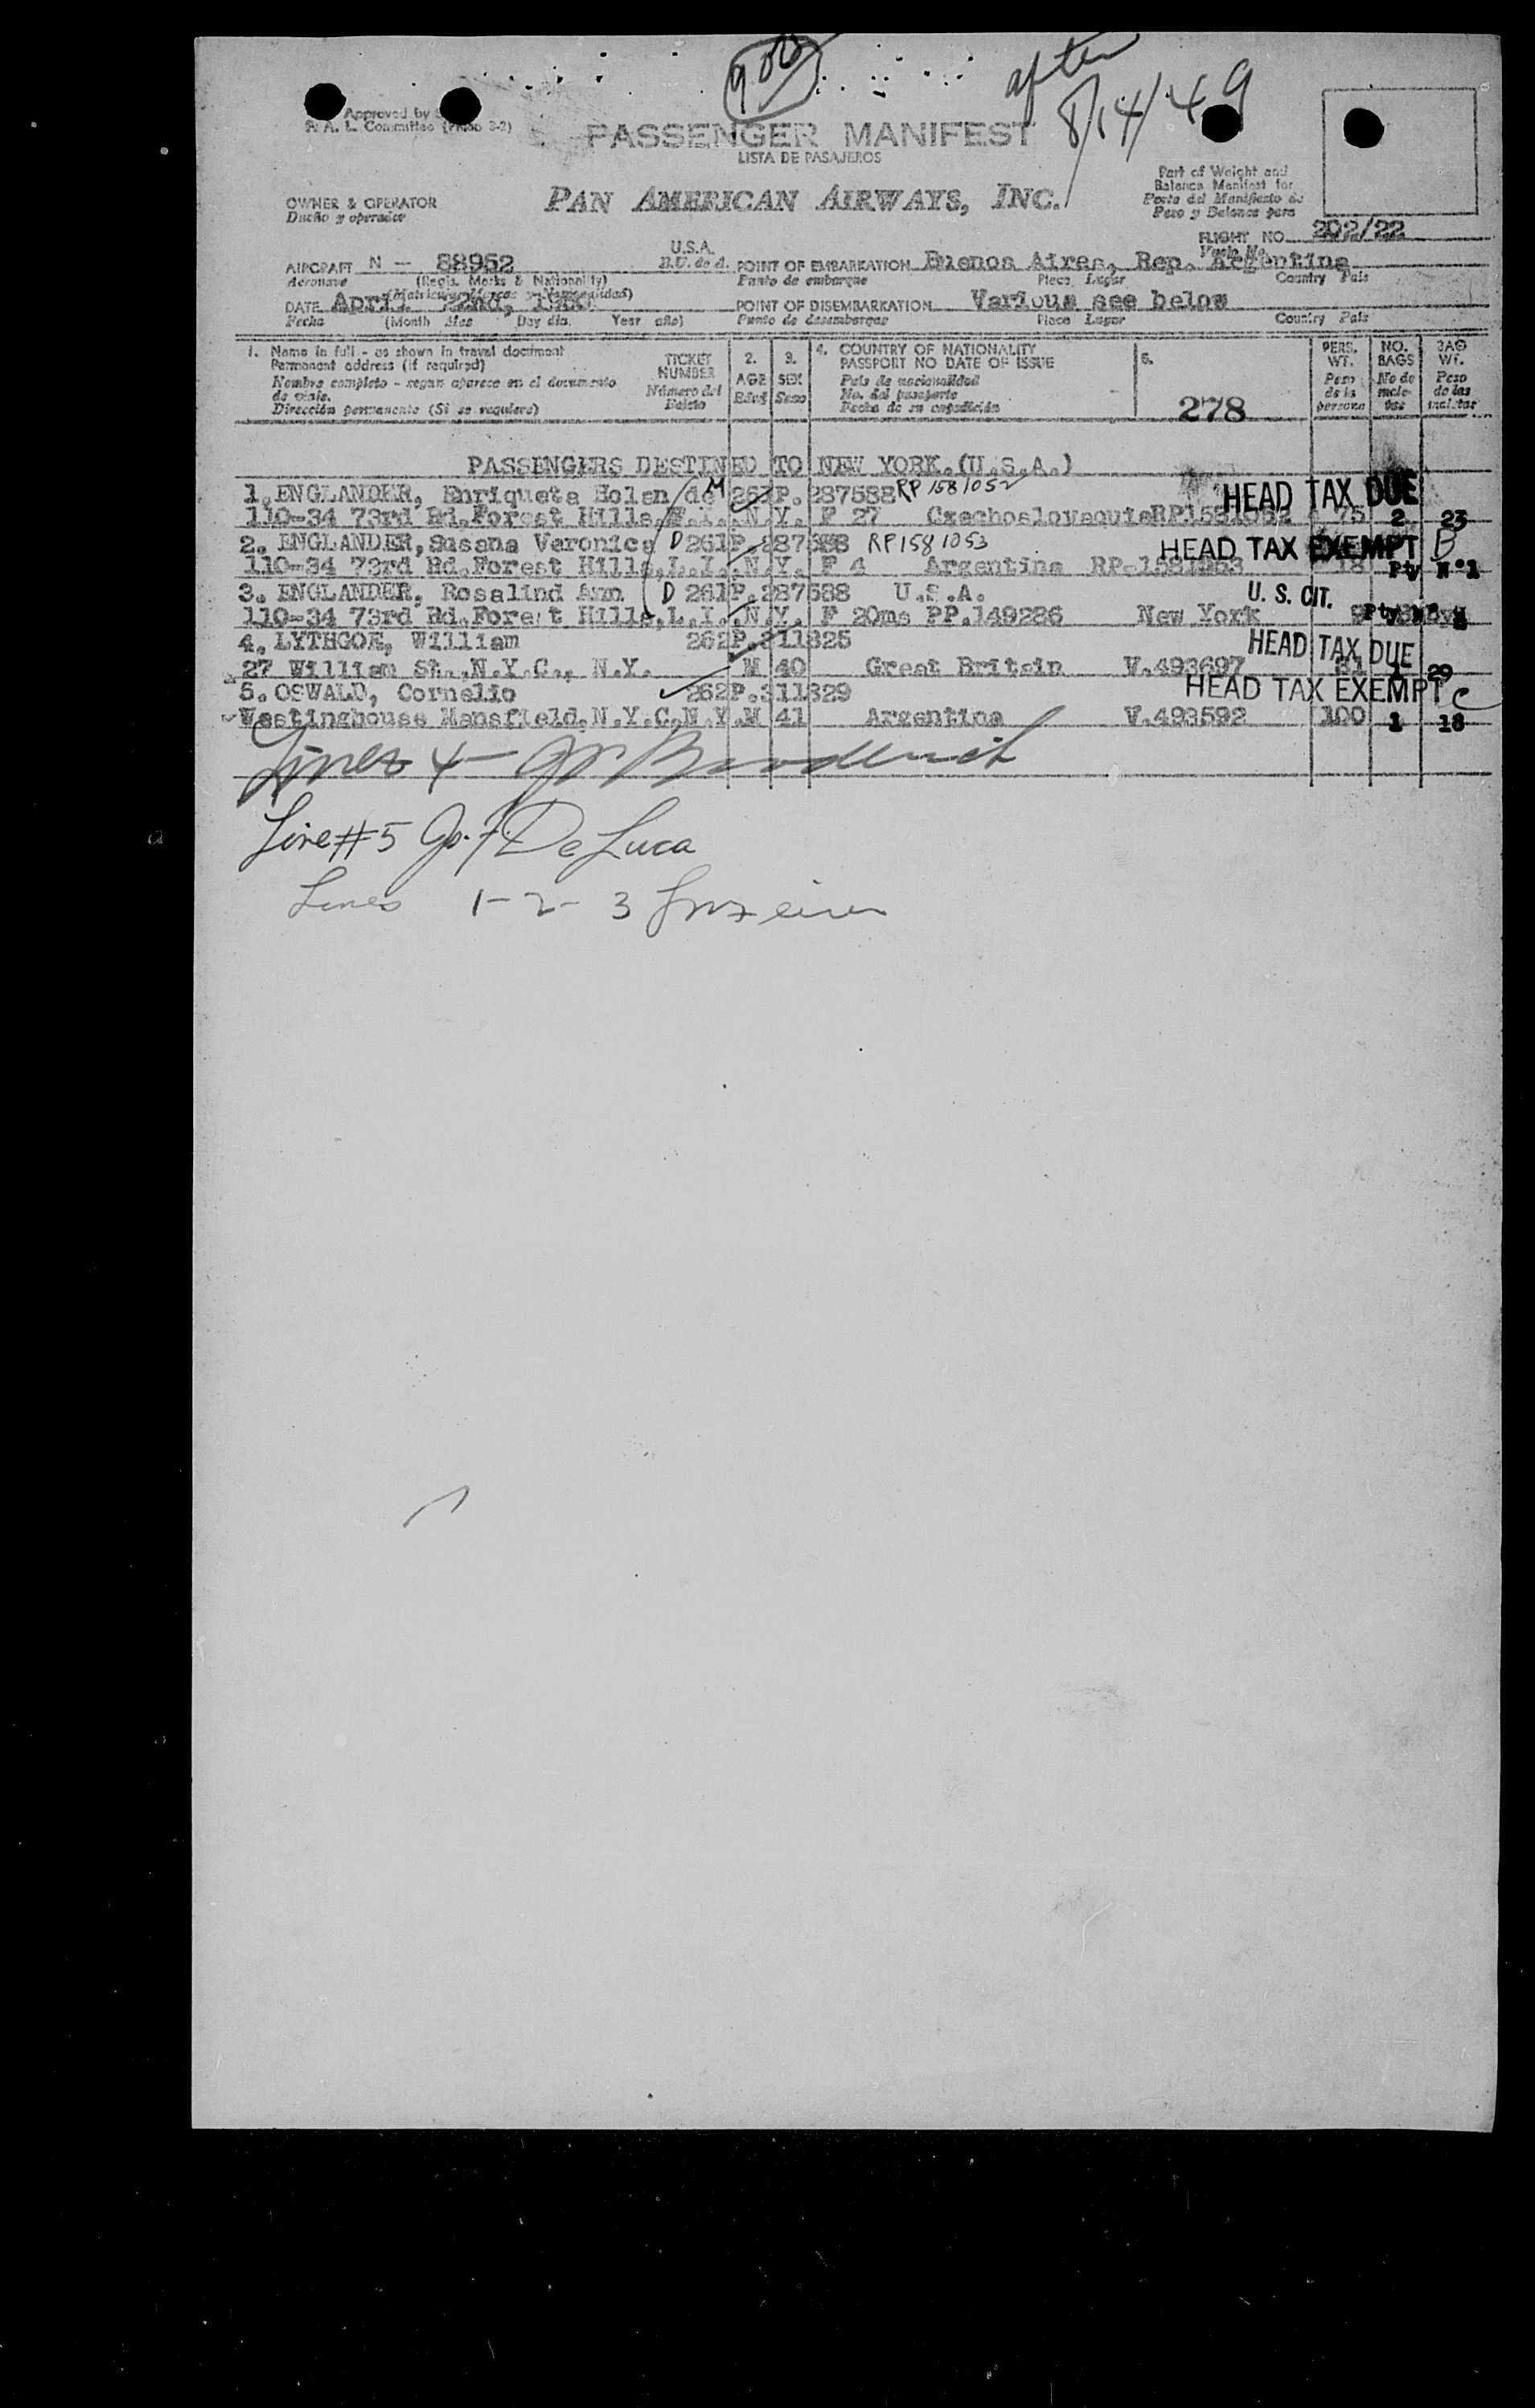 after
8/14/49
Approved by
PASSENGER MANIFEST
LISTA DE PASAJEROS
Part of Weight and
Balance Manifest for
Parte del Manifiesto de
Peso y Balance para
OWNER & OPERATOR
Dueño y operador
PAN AMERICAN AIRWAYS, INC.
FLIGHT NO. 202/22
Vuelo No.
AIRCRAFT N - 88952
Aeronave
(Regis. Marks & Nationality)
U.S.A.
E.U. de A.
POINT OF EMBARKATION Buenos Aires, Rep. Argentina
Punto de embarque
Place Lugar
Country País
DATE April
Fecha
(Month Mes Day día Year año)
POINT OF DISEMBARKATION Various see below
Punto de desembarque
Place Lugar
Country País
1. Name in full - as shown in travel document
Permanent address (if required)
Nombre completo - segun aparece en el documento
de viaje.
Dirección permanente (Si se requiere)
TICKET
NUMBER
Número del
Boleto
2.
AGE
Edad
3.
SEX
Sexo
4. COUNTRY OF NATIONALITY
PASSPORT NO DATE OF ISSUE
País de nacionalidad
No. del pasaporte
Fecha de su expedición
5.
278
PERS.
WT.
Peso
de la
persona
NO.
BAGS
No de
male-
tas
BAG
WT.
Peso
de las
maletas
PASSENGERS DESTINED TO NEW YORK.(U.S.A.)
1.ENGLANDER, Enriqueta Holen de M 261P.287588 RP 1581052 HEAD TAX DUE
110-34 73rd Rd.Forest Hills, N.Y. F 27 Czechoslovaquia RP1581052 75 2 23
2. ENGLANDER,Susana Veronica D 261P.287588 RP1581053 HEAD TAX EXEMPT B
110-34 73rd Rd.Forest Hills,L.I.,N.Y. F 4 Argentina RP-1581053 18 Pty Nº1
3. ENGLANDER, Rosalind Ann D 261P.287588 U.S.A. U. S. CIT.
110-34 73rd Rd.Forest Hills,L.I.,N.Y. F 20ms PP.149286 New York
4. LYTHGOE, William 262P.311325 HEAD TAX DUE
27 William St.,N.Y.C., N.Y. M 40 Great Britain V.493697 81 1 29
5. OSWALD, Cornelio 262P.311329 HEAD TAX EXEMPT C
Westinghouse Mansfield,N.Y.C.N.Y.M 41 Argentina V.493592 100 1 18
Lines 4
Line #5 De Luca
Lines 1-2-3